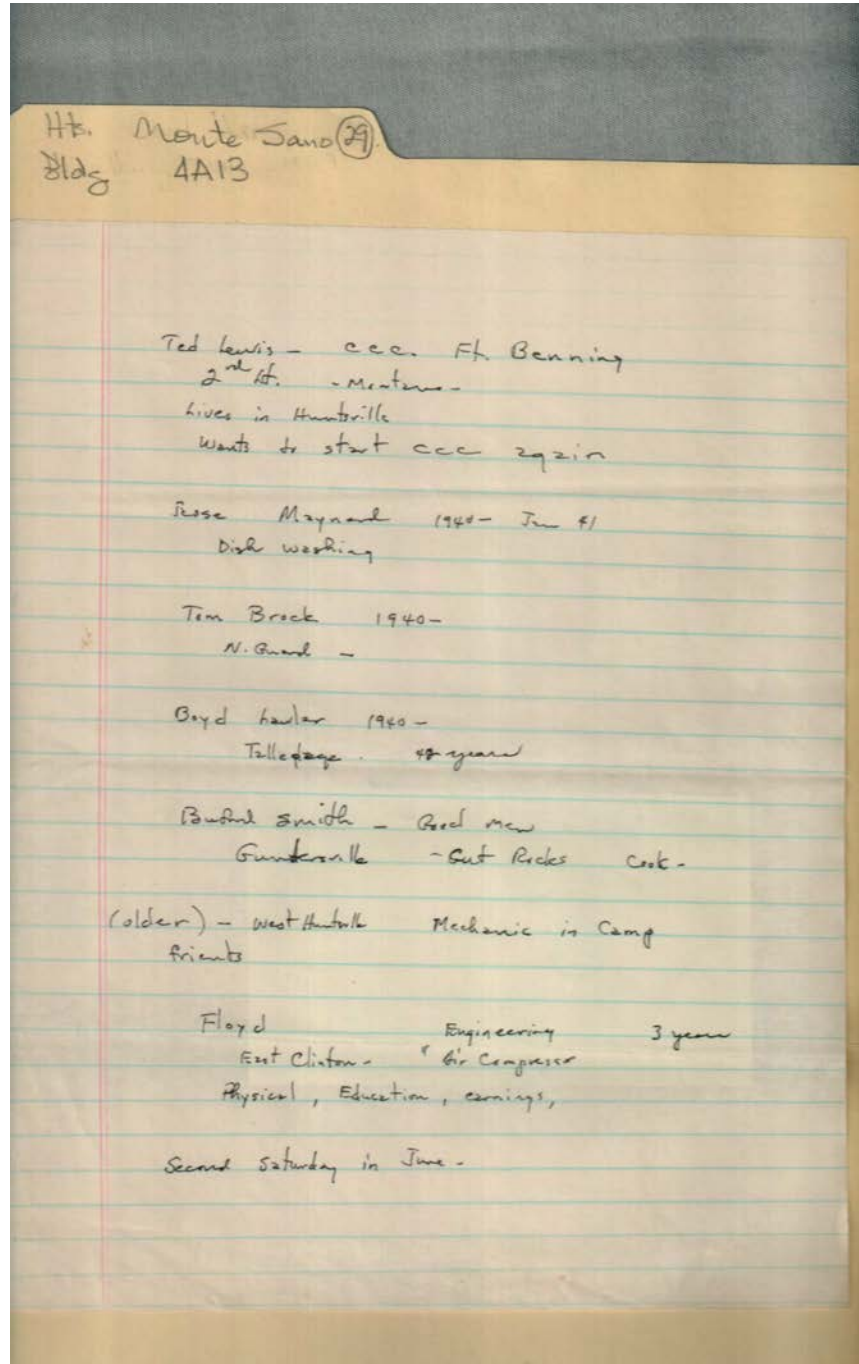 Hts. Monte Sano 29
Bldg 4A13
Ted Lewis - CCC. Ft. Benning
2nd Lt.
Lives in Huntsville
Wants to start CCC again
Maynard 1940 - Jan 41
Dish washing
Tom Brock 1940 -
N. Guard -
Boyd 1940 -
years
Smith - Good men
Guntersville - Cut Rocks Cook -
(older) - West Huntsville Mechanic in Camp
frients
Floyd Engineering 3 years
East Clinton - Air Compressor
Physical, Education, earnings,
Second Saturday in June -